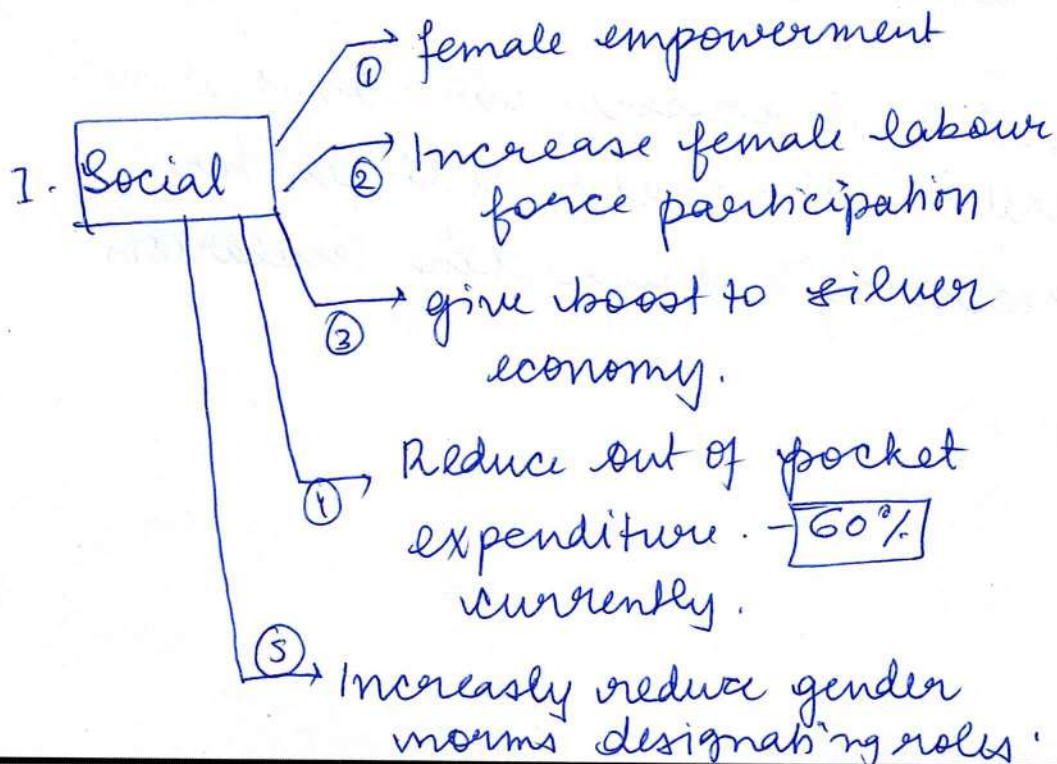 ① female empowerment
I. Social
② Increase female labour
force participation
③ give boost to silver
economy.
④ Reduce out of pocket
expenditure. - 60%
currently.
⑤ Increasly reduce gender
norms designating roles.